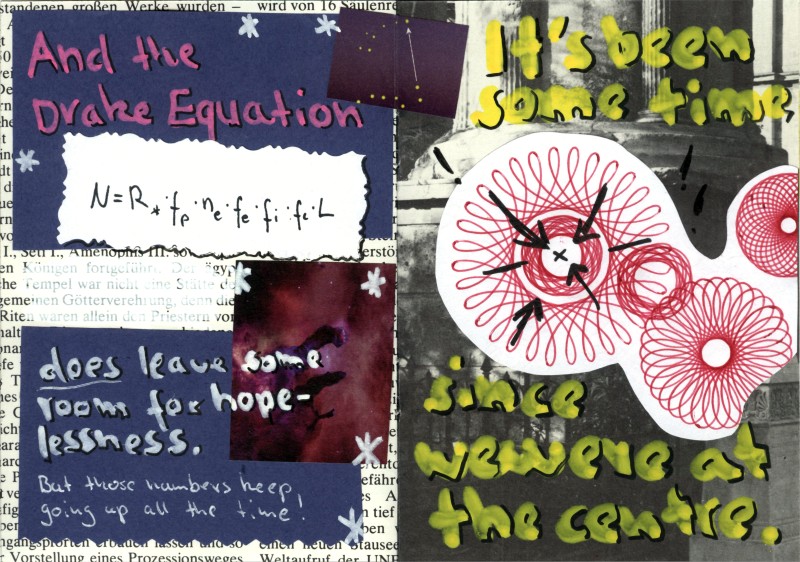 standenen großen Werke wurden – wird von 16 Säulenre
And the
Drake Equation
N = R* · fp · ne · fe · fi · fc · L
I., Seti I., Amenophis III.
en Königen fortgeführt. Der ägyp
Tempel war nicht eine Stätte
gemeinen Götterverehrung, denn die
Riten waren allein den Priestern vor
does leave some
room for hope-
lessness.
But those numbers keep
going up all the time!
ngangspforten erbauen lassen und so einen neuen Stausee
r Vorstellung eines Prozessionsweges Weltaufruf der UNE
It's been
some time
x
since
we were at
the centre.